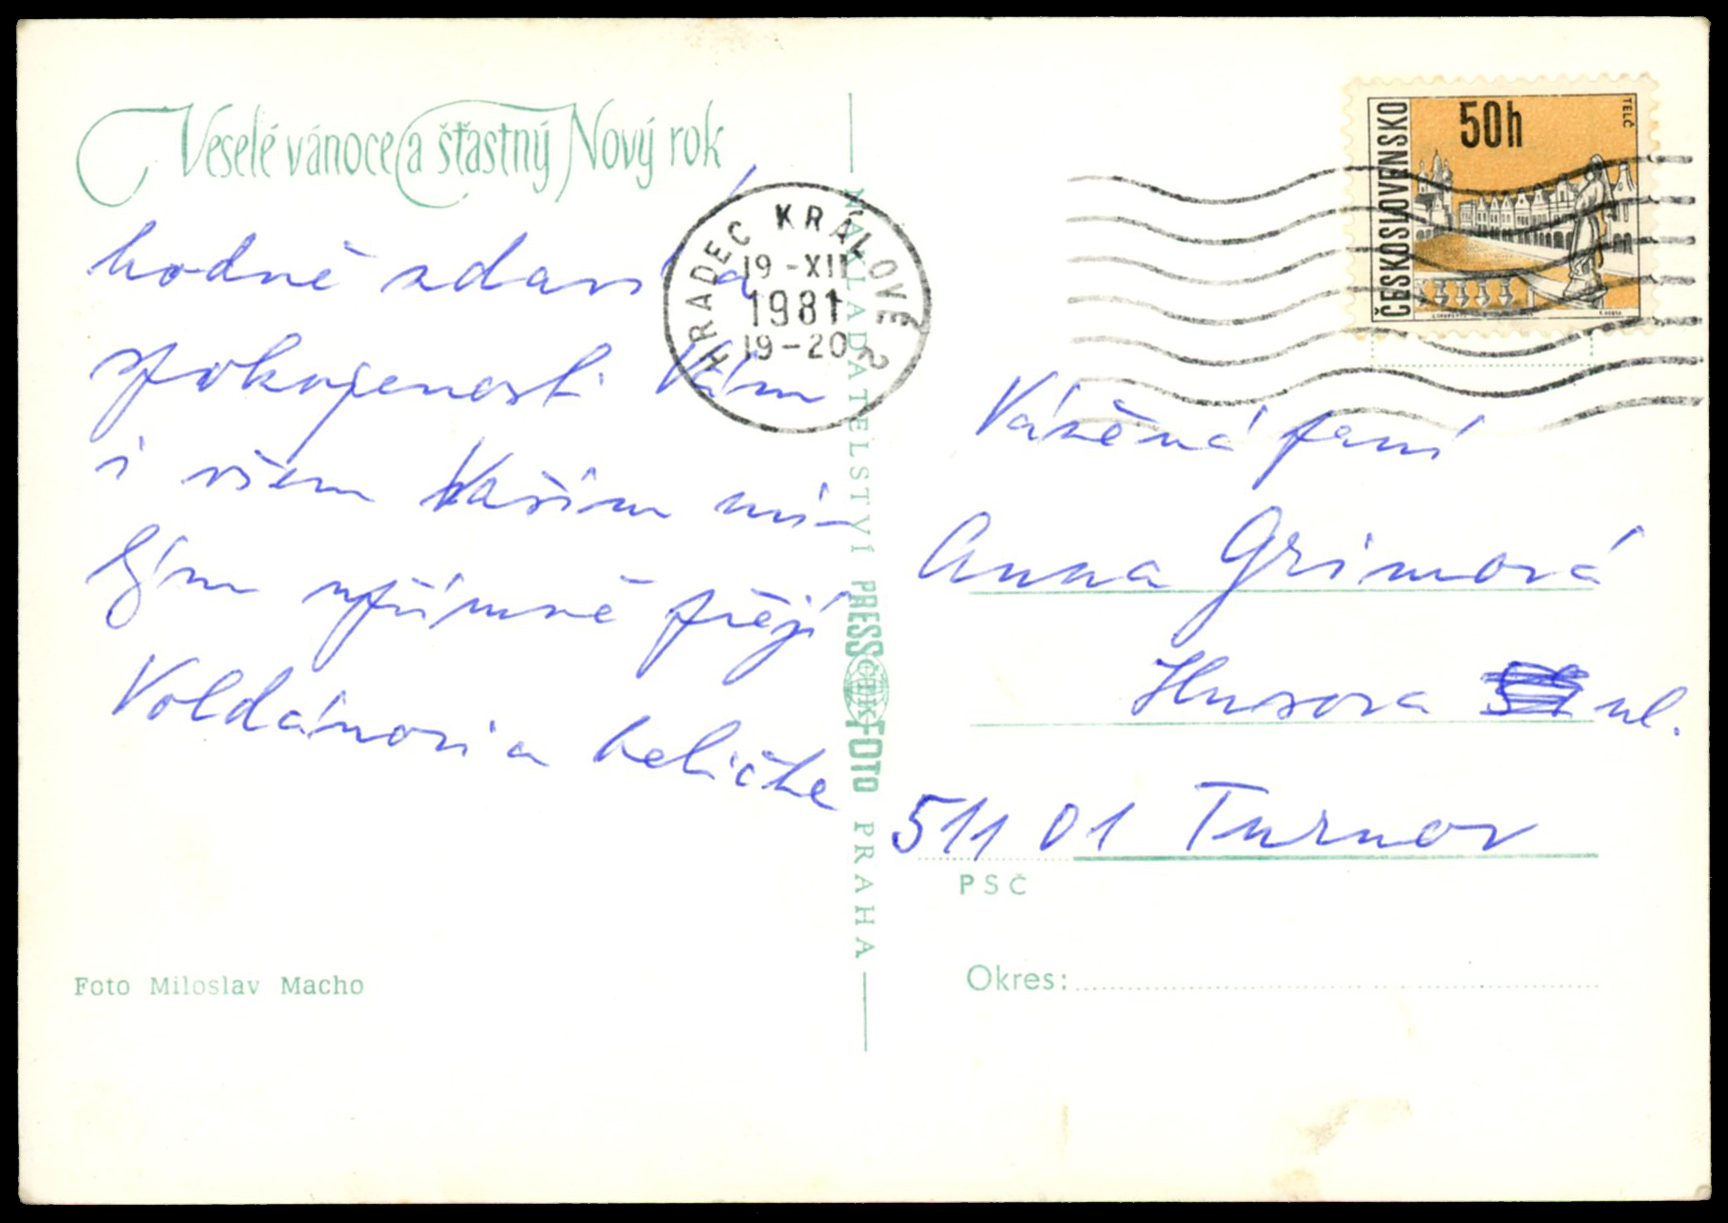 Veselé vánoce a šťastný Nový rok
hodně zdaru a
spokojenosti Vám
i všem Vašim mi-
lým upřímně přejí
Voldánovi a
Foto Miloslav Macho
NAKLADATELSTVÍ PRESSFOTO PRAHA
ČTK
HRADEC KRÁLOVÉ 2
19-XII
1981
19-20
ČESKOSLOVENSKO
50h
TELČ
Vážená paní
Anna Grimová
Husova ul.
511 01 Turnov
PSČ
Okres: